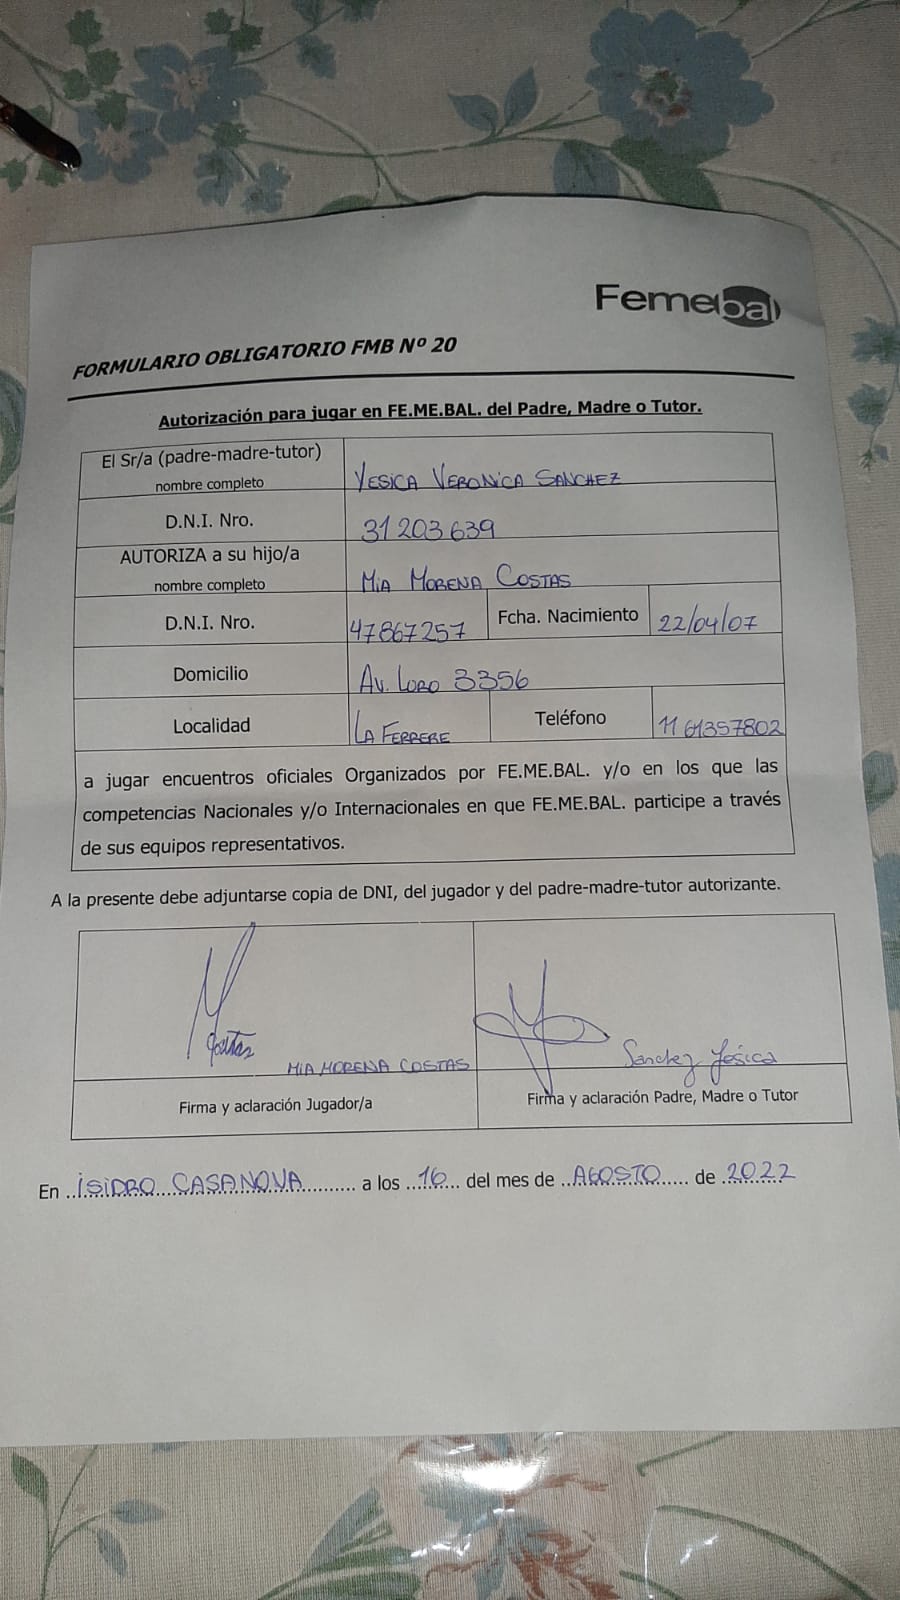 Femebal
FORMULARIO OBLIGATORIO FMB Nº 20
Autorización para jugar en FE.ME.BAL. del Padre, Madre o Tutor.
El Sr/a (padre-madre-tutor)
nombre completo
YESICA VERONICA SANCHEZ
D.N.I. Nro.
31203639
AUTORIZA a su hijo/a
nombre completo
MIA MORENA COSTAS
D.N.I. Nro.
47867257
Fcha. Nacimiento
22/04/07
Domicilio
AV. LORO 3356
Localidad
LA FERRERE
Teléfono
1161357802
a jugar encuentros oficiales Organizados por FE.ME.BAL. y/o en los que las
competencias Nacionales y/o Internacionales en que FE.ME.BAL. participe a través
de sus equipos representativos.
A la presente debe adjuntarse copia de DNI, del jugador y del padre-madre-tutor autorizante.
Costas
MIA MORENA COSTAS
Sanchez Yesica
Firma y aclaración Jugador/a
Firma y aclaración Padre, Madre o Tutor
En ..ISIDRO....CASANOVA.......... a los ..16.... del mes de ..AGOSTO..... de .2022